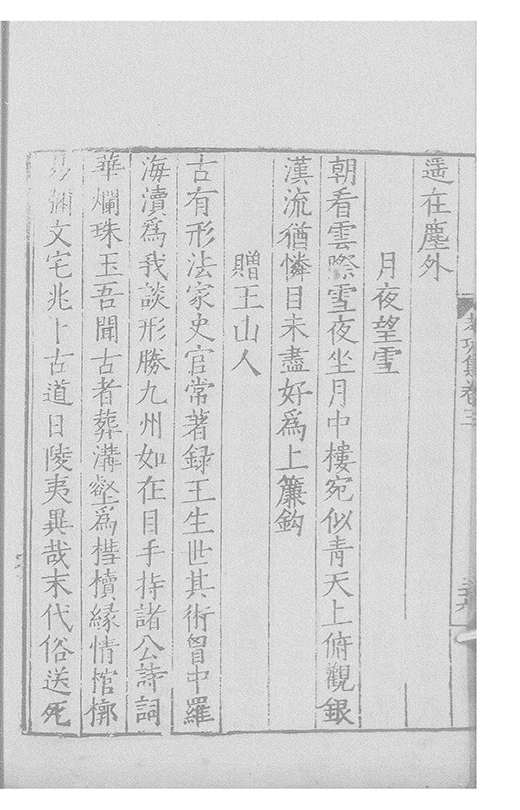 遥在塵外
月夜望雪
朝看雲際雪夜坐月中樓宛似青天上俯觀銀
漢流猶憐目未盡好爲上簾鈎
贈王山人
古有形法家史官常著録王生世其術胷中羅
海瀆爲我談形勝九州如在目手持諸公詩詞
華爛珠玉吾聞古者葬溝壑爲槥櫝緣情棺槨
易彌文宅兆卜古道日陵夷異哉末代俗送死
集卷三